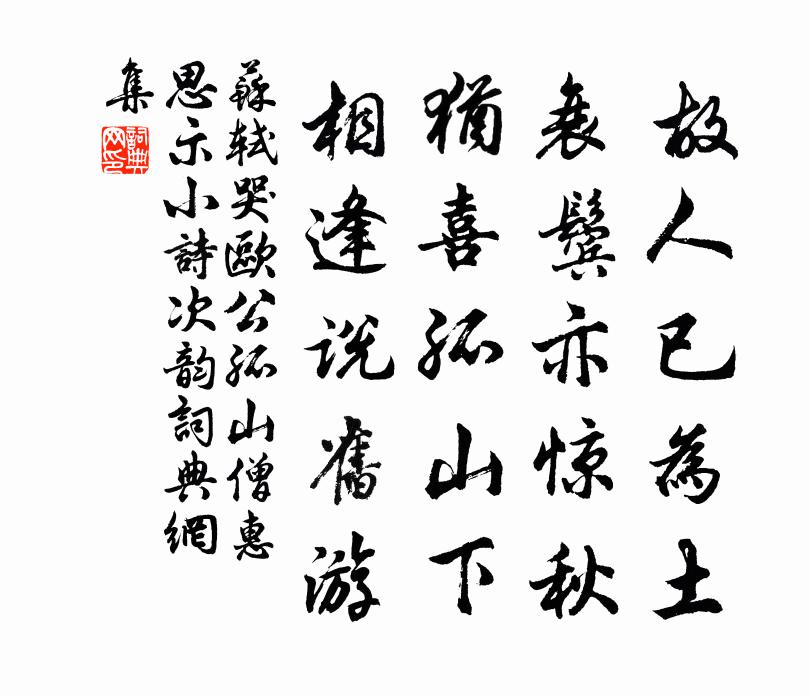 故人已為土
衰鬓亦惊秋
猶喜孤山下
相逢说舊游
蘇轼哭歐公孤山僧惠
思示小詩次韵詞典網
集
詞典
网印